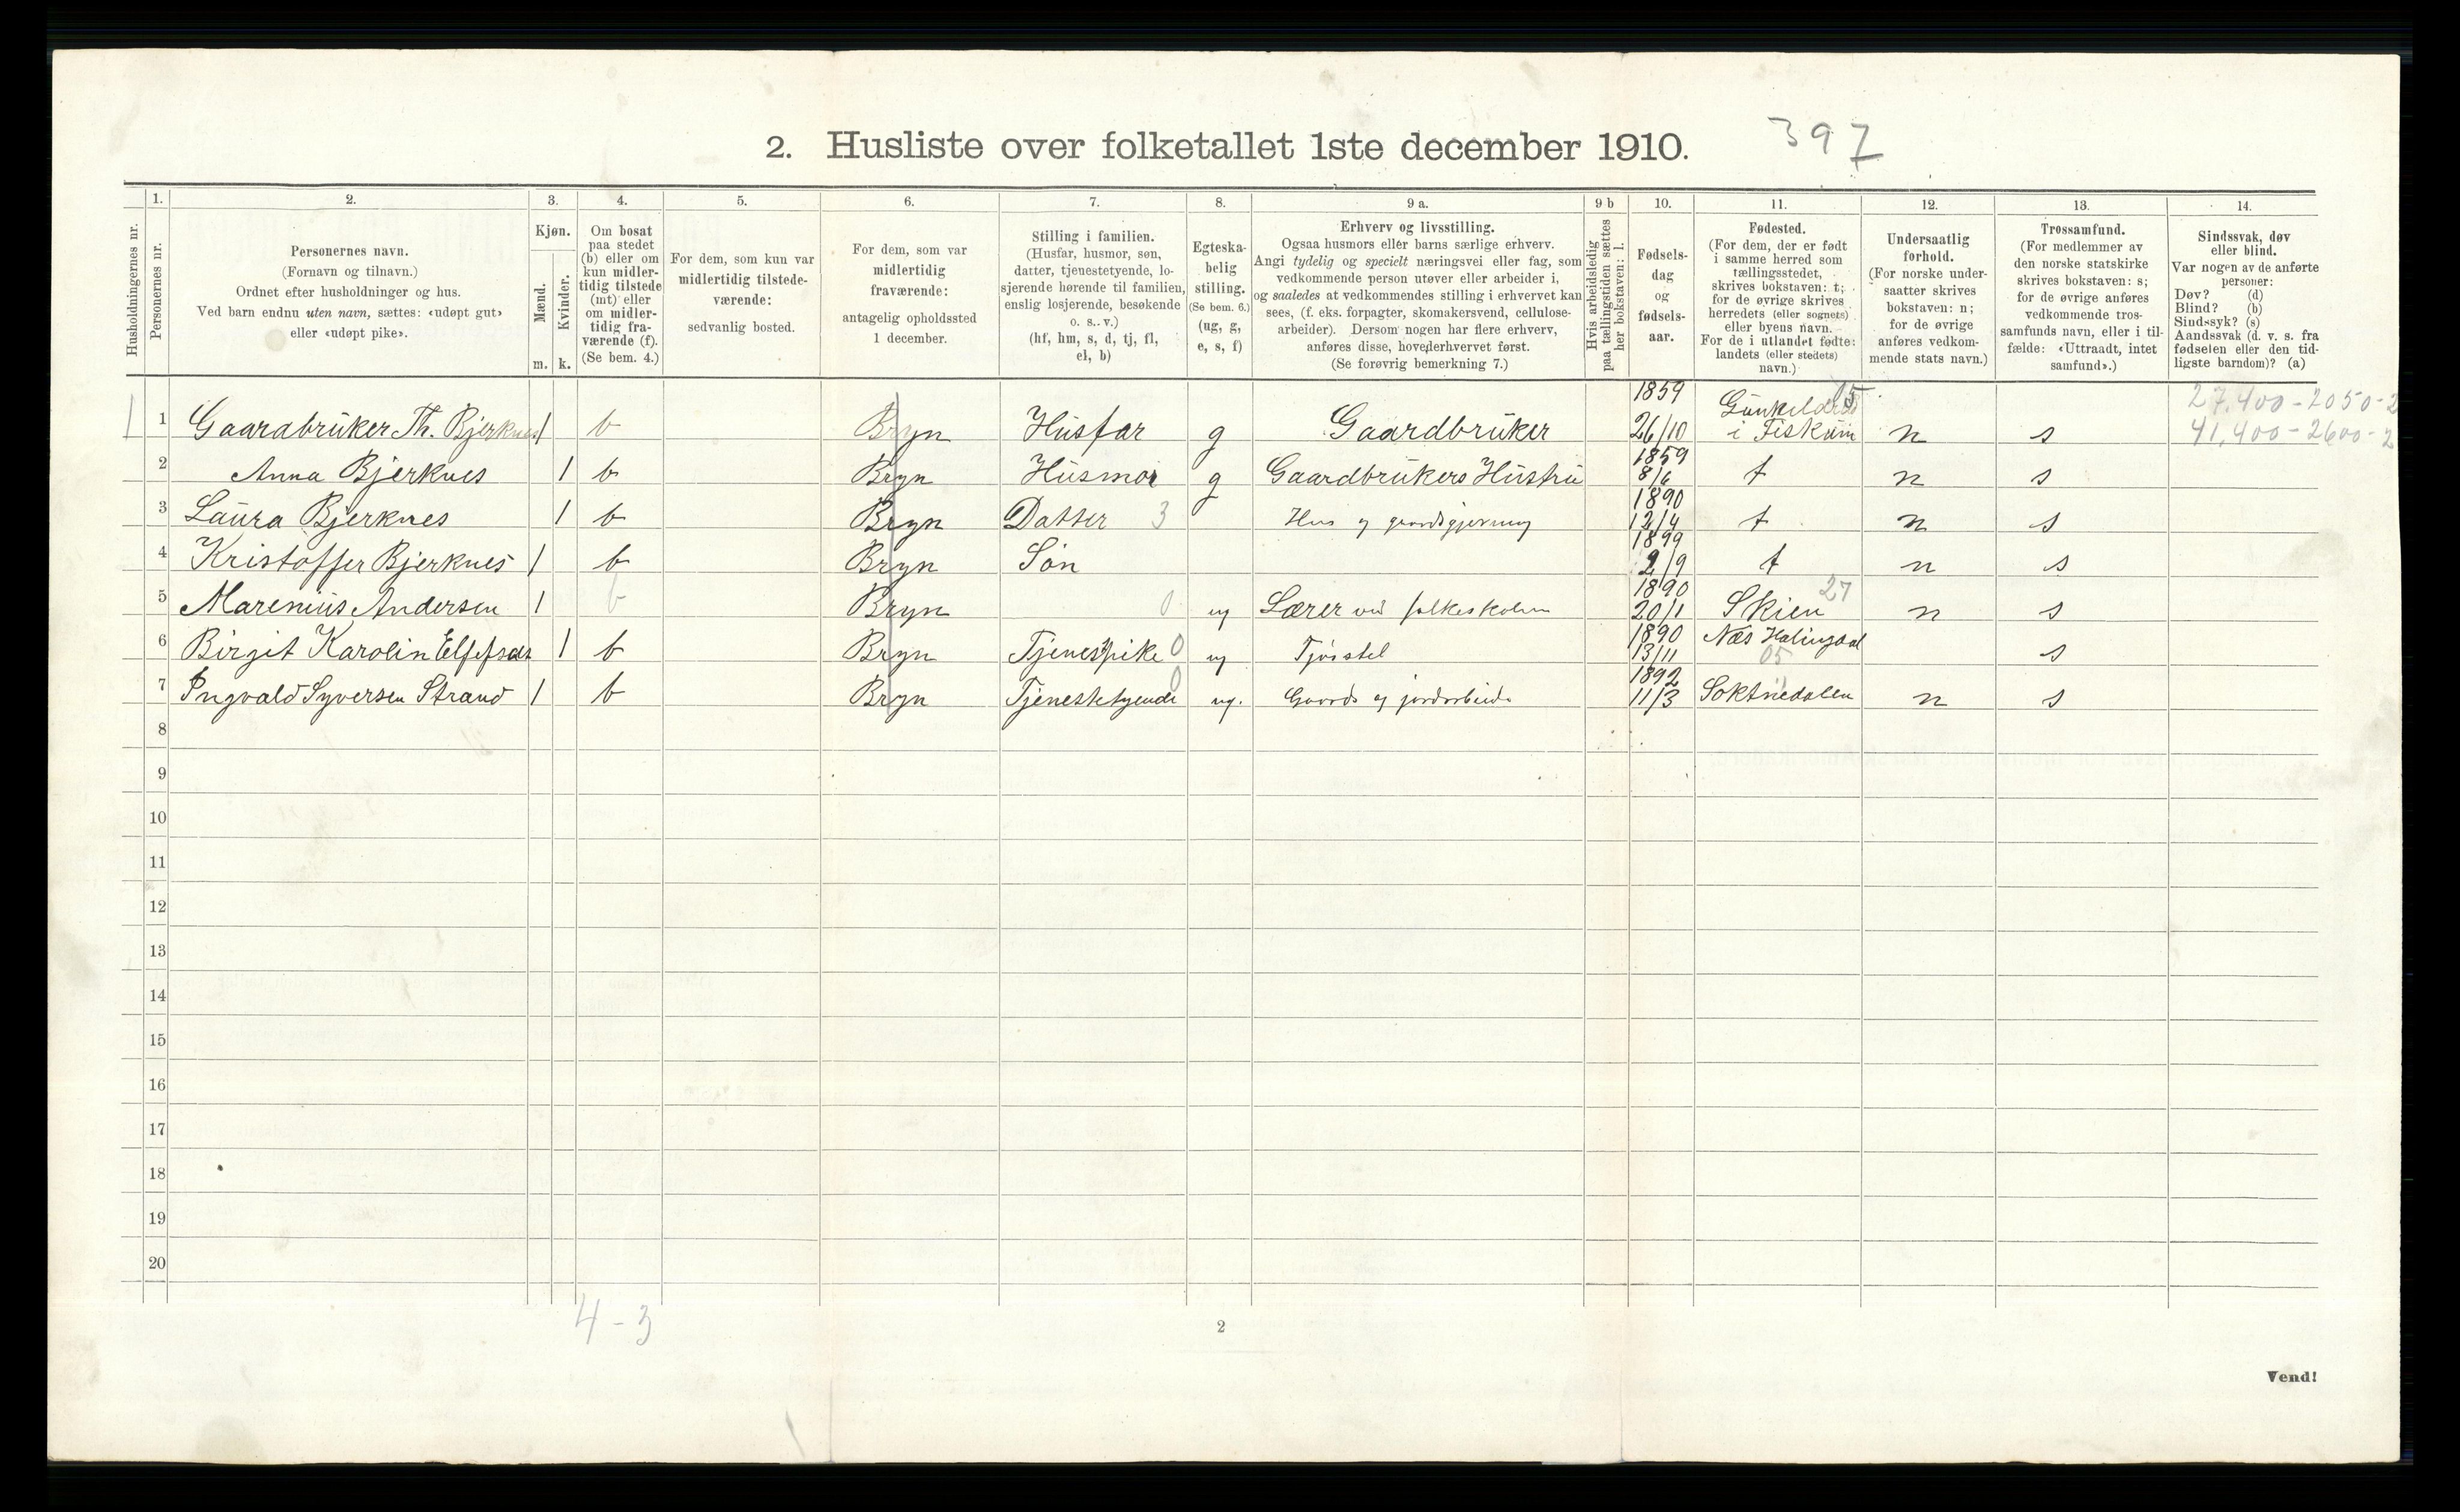 2. Husliste over folketallet 1ste december 1910.
397
Husholdningernes nr.
1.
Personernes nr.
2.
Personernes navn.
(Fornavn og tilnavn.)
Ordnet efter husholdninger og hus.
Ved barn endnu uten navn, sættes: «udøpt gut»
eller «udøpt pike».
3.
Kjøn.
Mænd.
Kvinder.
m. k.
4.
Om bosat
paa stedet
(b) eller om
kun midler-
tidig tilstede
(mt) eller
om midler-
tidig fra-
værende (f).
(Se bem. 4.)
5.
For dem, som kun var
midlertidig tilstede-
værende:
sedvanlig bosted.
6.
For dem, som var
midlertidig
fraværende:
antagelig opholdssted
1 december.
7.
Stilling i familien.
(Husfar, husmor, søn,
datter, tjenestetyende, lo-
sjerende hørende til familien,
enslig losjerende, besøkende
o. s. v.)
(hf, hm, s, d, tj, fl,
el, b)
8.
Egteska-
belig
stilling.
(Se bem. 6.)
(ug, g,
e, s, f)
9 a.
Erhverv og livsstilling.
Ogsaa husmors eller barns særlige erhverv.
Angi tydelig og specielt næringsvei eller fag, som
vedkommende person utøver eller arbeider i,
og saaledes at vedkommendes stilling i erhvervet kan
sees, (f. eks. forpagter, skomakersvend, cellulose-
arbeider). Dersom nogen har flere erhverv,
anføres disse, hovederhvervet først.
(Se forøvrig bemerkning 7.)
9 b
Hvis arbeidsledig
paa tællingstiden sættes
her bokstaven: l.
10.
Fødsels-
dag
og
fødsels-
aar.
11.
Fødested.
(For dem, der er født
i samme herred som
tællingsstedet,
skrives bokstaven: t;
for de øvrige skrives
herredets (eller sognets)
eller byens navn.
For de i utlandet fødte:
landets (eller stedets)
navn.)
12.
Undersaatlig
forhold.
(For norske under-
saatter skrives
bokstaven: n;
for de øvrige
anføres vedkom-
mende stats navn.)
13.
Trossamfund.
(For medlemmer av
den norske statskirke
skrives bokstaven: s;
for de øvrige anføres
vedkommende tros-
samfunds navn, eller i til-
fælde: «Uttraadt, intet
samfund».)
14.
Sindssvak, døv
eller blind.
Var nogen av de anførte
personer:
Døv? (d)
Blind? (b)
Sindssyk? (s)
Aandssvak (d. v. s. fra
fødselen eller den tid-
ligste barndom)? (a)
27,400 - 2050 - 2
41,400 - 2600 - 2
1 1 Gaardbruker Th. Bjerknes 1 b Bryn Husfar g Gaardbruker 1859 26/10 i Fiskum 05 n s
2 Anna Bjerknes 1 b Bryn Husmor g Gaardbrukers Hustru 1859 8/6 t n s
3 Laura Bjerknes 1 b Bryn Datter 3 Hus og gaardsgjerning 1890 12/4 t n s
4 Kristoffer Bjerknes 1 b Bryn Søn 1899 2/9 t n s
5 Marenius Andersen 1 b Bryn 0 ug Lærer ved folkeskolen 1890 20/1 Skien 27 n s
6 Birgit Karolin 1 b Bryn Tjenestpike 0 ug Fjøsstel 1890 13/11 Næs Halingdal 05 s
7 Ingvald Syversen Strand 1 b Bryn Tjenestetyende 0 ug. Gaards og jordarbeide 1892 11/3 Soknedalen n s
8
9
10
11
12
13
14
15
16
17
18
19
20
4 - 3
2
Vend!